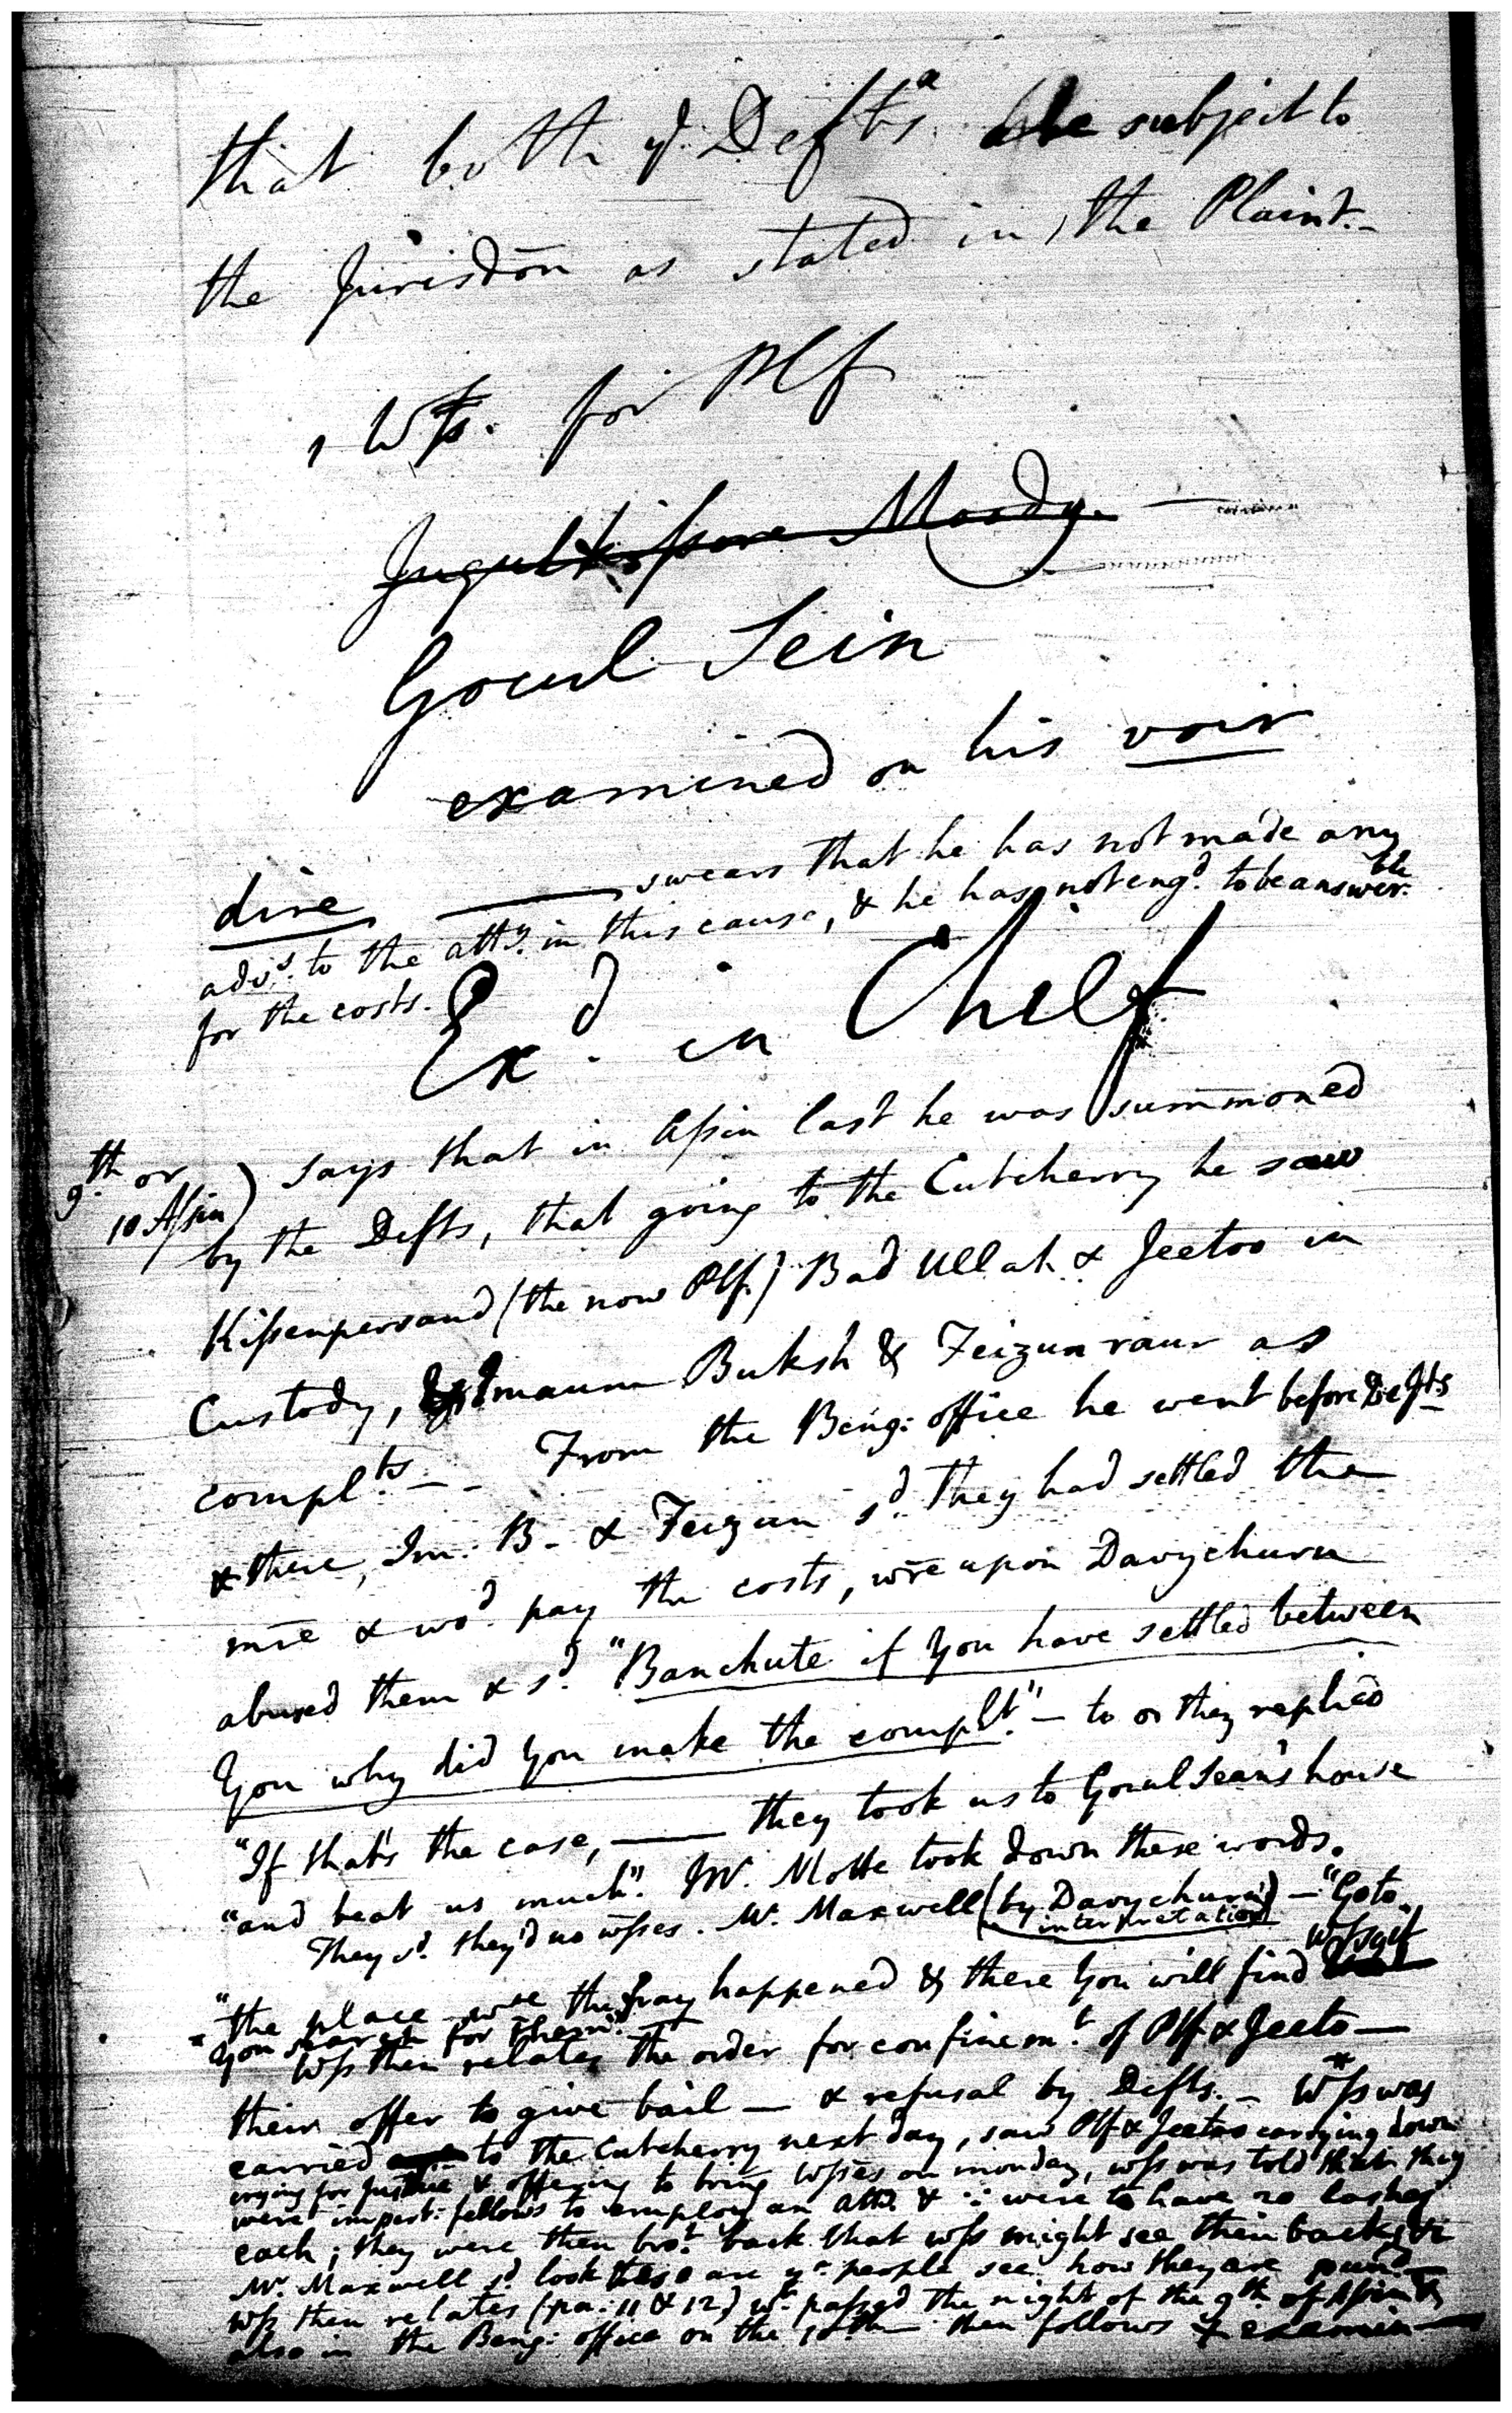 that both yͤ Defts are subject to
the Jurisdōn as stated in the Plaint.-
1 Wſs. for Plf
Jugulkiſsore Moody
Gocul Sein
examined on his voir
dire ——— swears that he has not made any
advs. to the atty. in this cause, & he has not engd. to be answerble
for the costs.
Exd. in Chief
9th. or
10 Aſsin)
says that in Aſsin last he was summoned
by the Defts, that going to the Cutcherry he saw
Kiſsenpersand (the now Plf.) Bad Ullah & Jeetoo in
Custody, Imaum Buksh & Feizun raur as
complts.- - From the Beng: office he went before Defts
& there, Im: B- & Feizun sd. they had settled the
mre & wod. pay the costs, wre upon Davychurn
abused them & sd. "Banchute if you have settled between
you why did you make the complt."- to os they replied
"If that's the case, —— they took us to Gocul Sean's house
"and beat us much". Mr. Motte took down these words.
They sd. they'd no wſses. Mr. Maxwell (by Davychurn's) - "Go to
interpretation
"the place wre the fray happened & there you will find wſses if
"you search for them."
Wſs then relates the order for confinemt. of Plf & Jeeto —
their offer to give bail — & refusal by Defts. - * Wſs was
carried to the Cutcherry next day, saw Plf & Jeetoo carrying down
crying for Justice & offering to bring Wſses on monday, wſs was told that they
were impert: fellows to employ an atty. & ∴ were to have 20 lashes
each; they were then brot. back that wſs might see their backs &
Mr. Maxwell sd. look these are yr. people see how they are
Wſs then relates (pa: 11 & 12) wt. paſsed the night of the 9th. of Aſsin &
also in the Beng: office on the 10th — then follows examin—